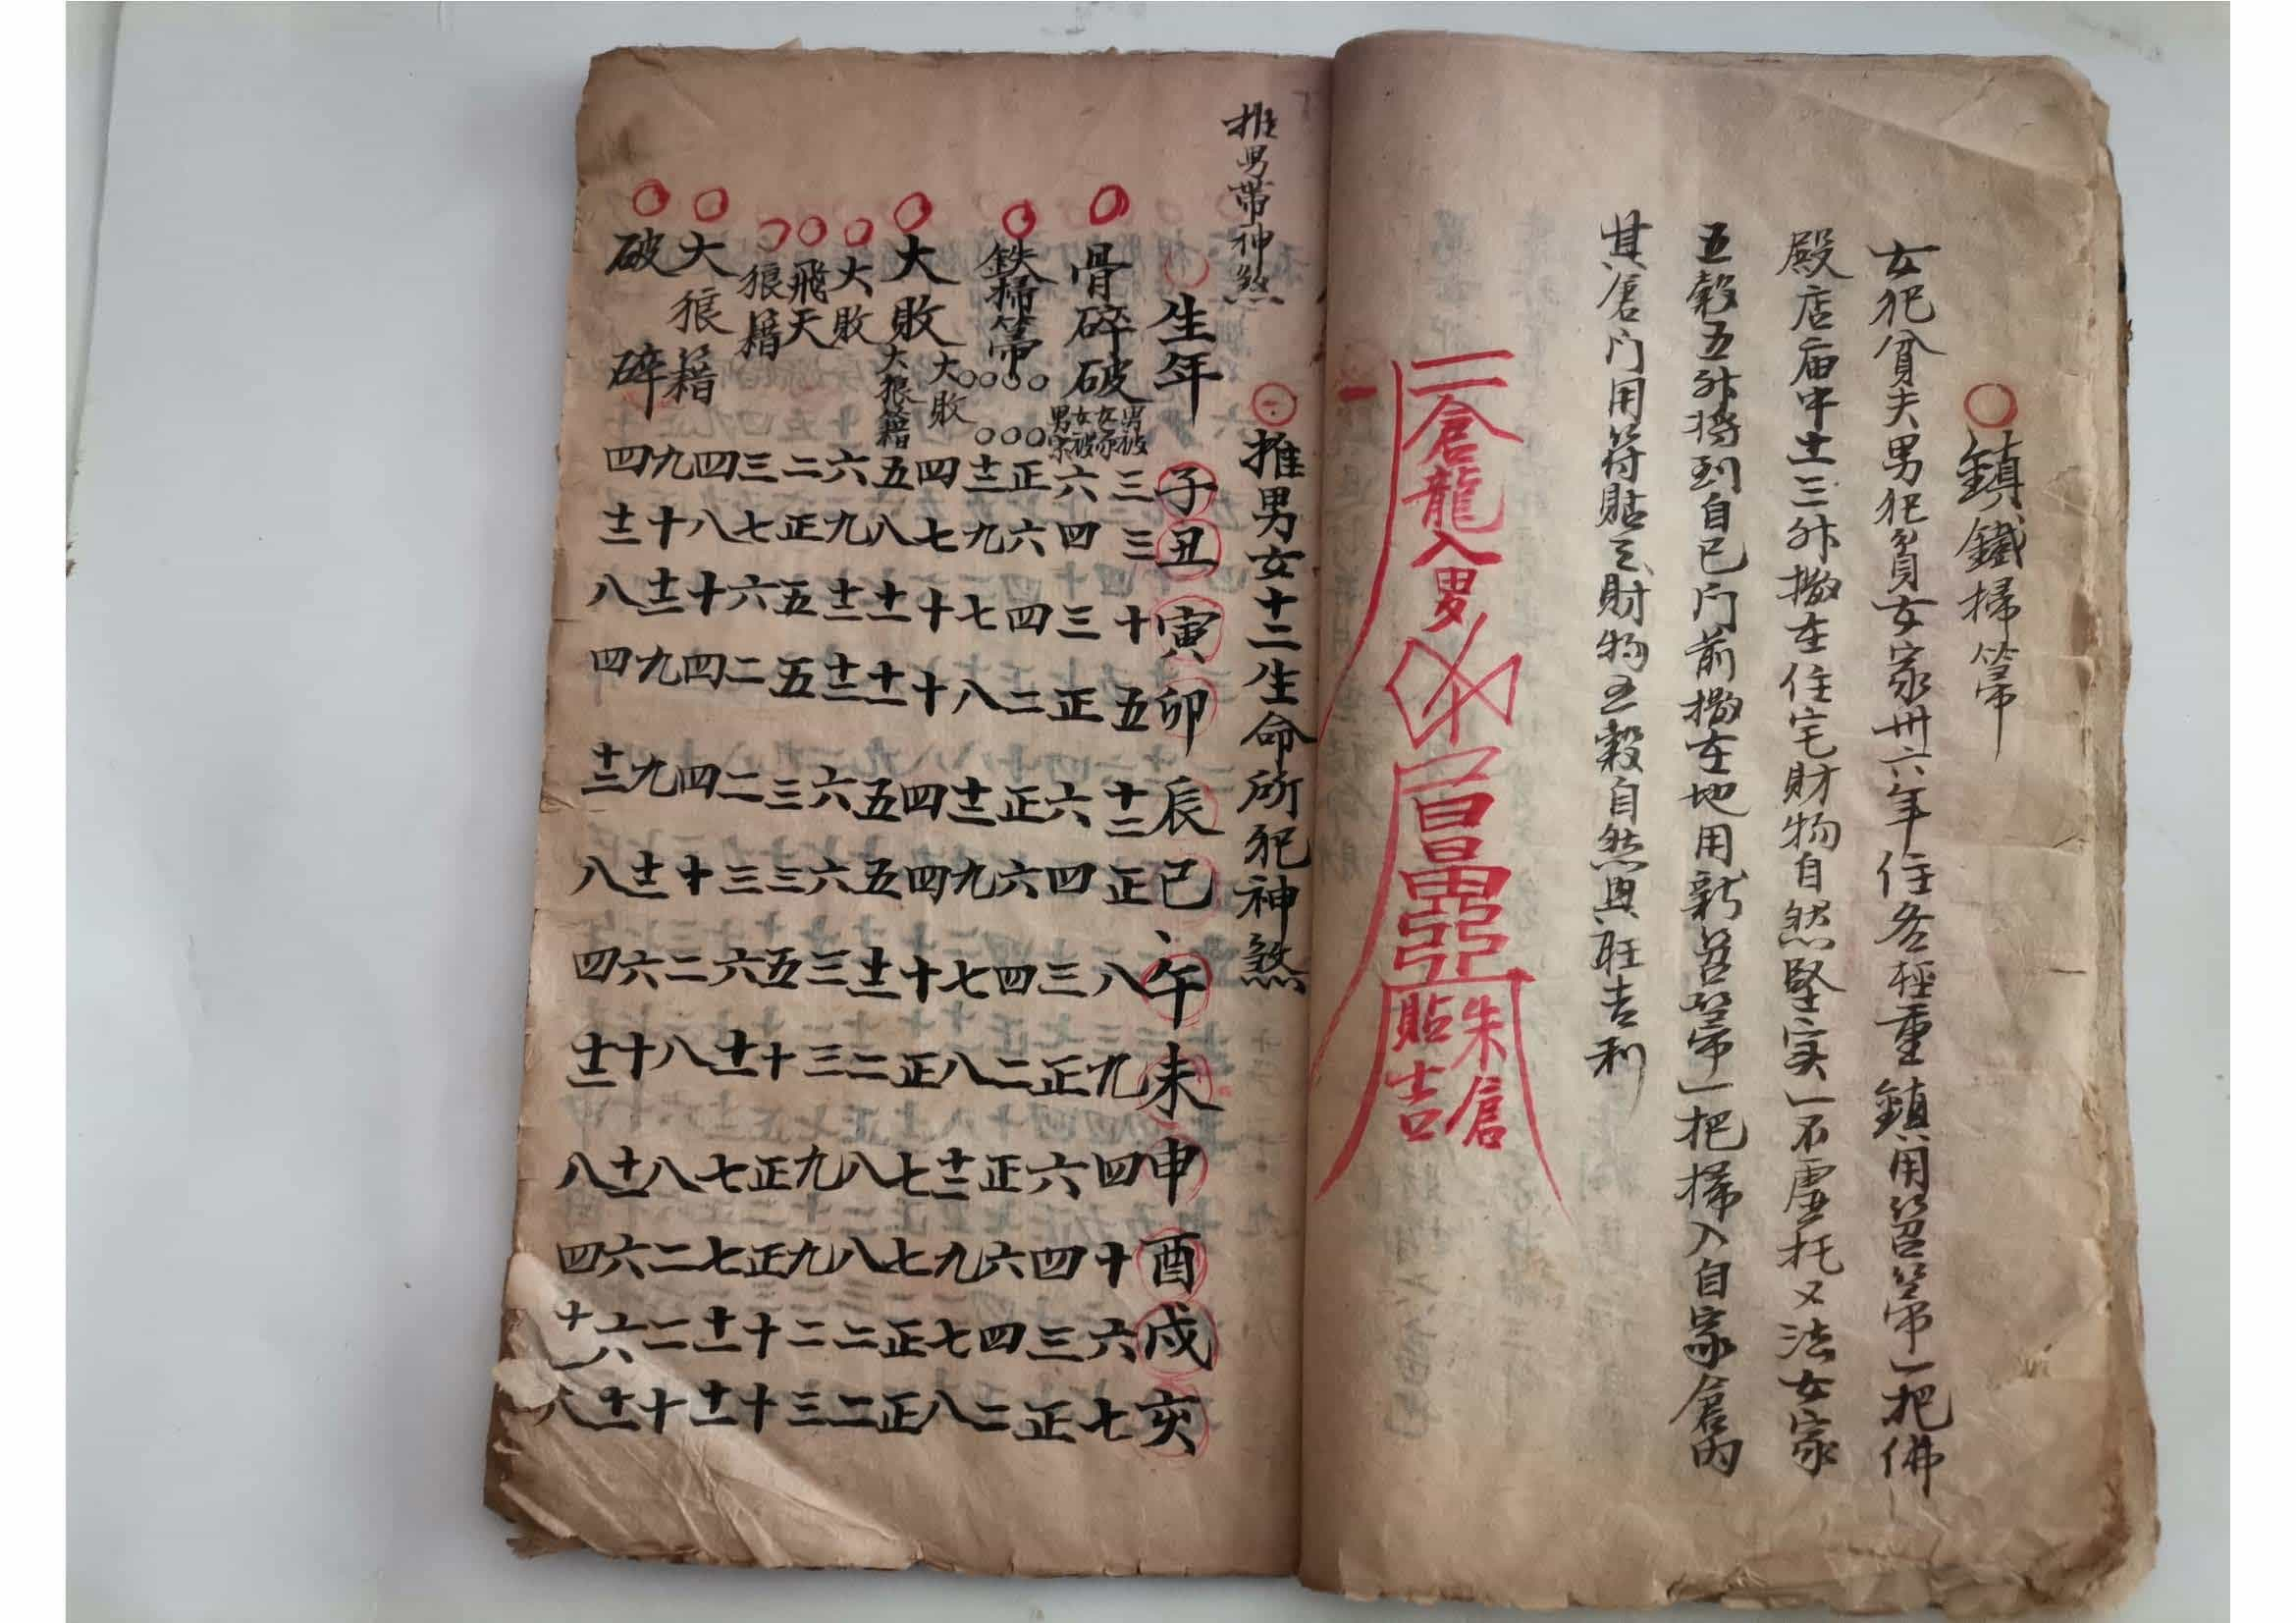 鎮鐵掃箒
女犯貧夫男犯貧女家卅六年住各輕重鎮用笤箒一把佛
殿店庙中土三升撒在住宅財物自然堅实一不虚托又法女家
五穀五升将到自己门前撒在地用新笤箒一把掃入自家倉内
其倉门用符貼之財物五穀自然興旺吉利
二倉龍入
昌
朱倉
貼吉
推男帶神煞
推男女十二生命所犯神煞
生年子丑寅卯辰巳午未申酉戌亥
骨碎破
男破女家 三三十五十二正八九四十六七
女破男家 六四三正六四三正六四三正
鉄掃箒
正六四二正六四二正六四二
十二九七八十二九七八十二九七八
大敗
大敗 四七十十四四十正七七正正
大狼籍 五八十一十一五五十二二八八二二
大敗 六九十二十二六六三三九九二三
飛天 二正五五三三五十正正十十
狼籍 三七六二二三六十一七七十一十一
大狼籍 四八十四四十二八八二二十
九十十二九九十二六十十一六六十一
破碎 四十二八四十二八四十二八四十一八